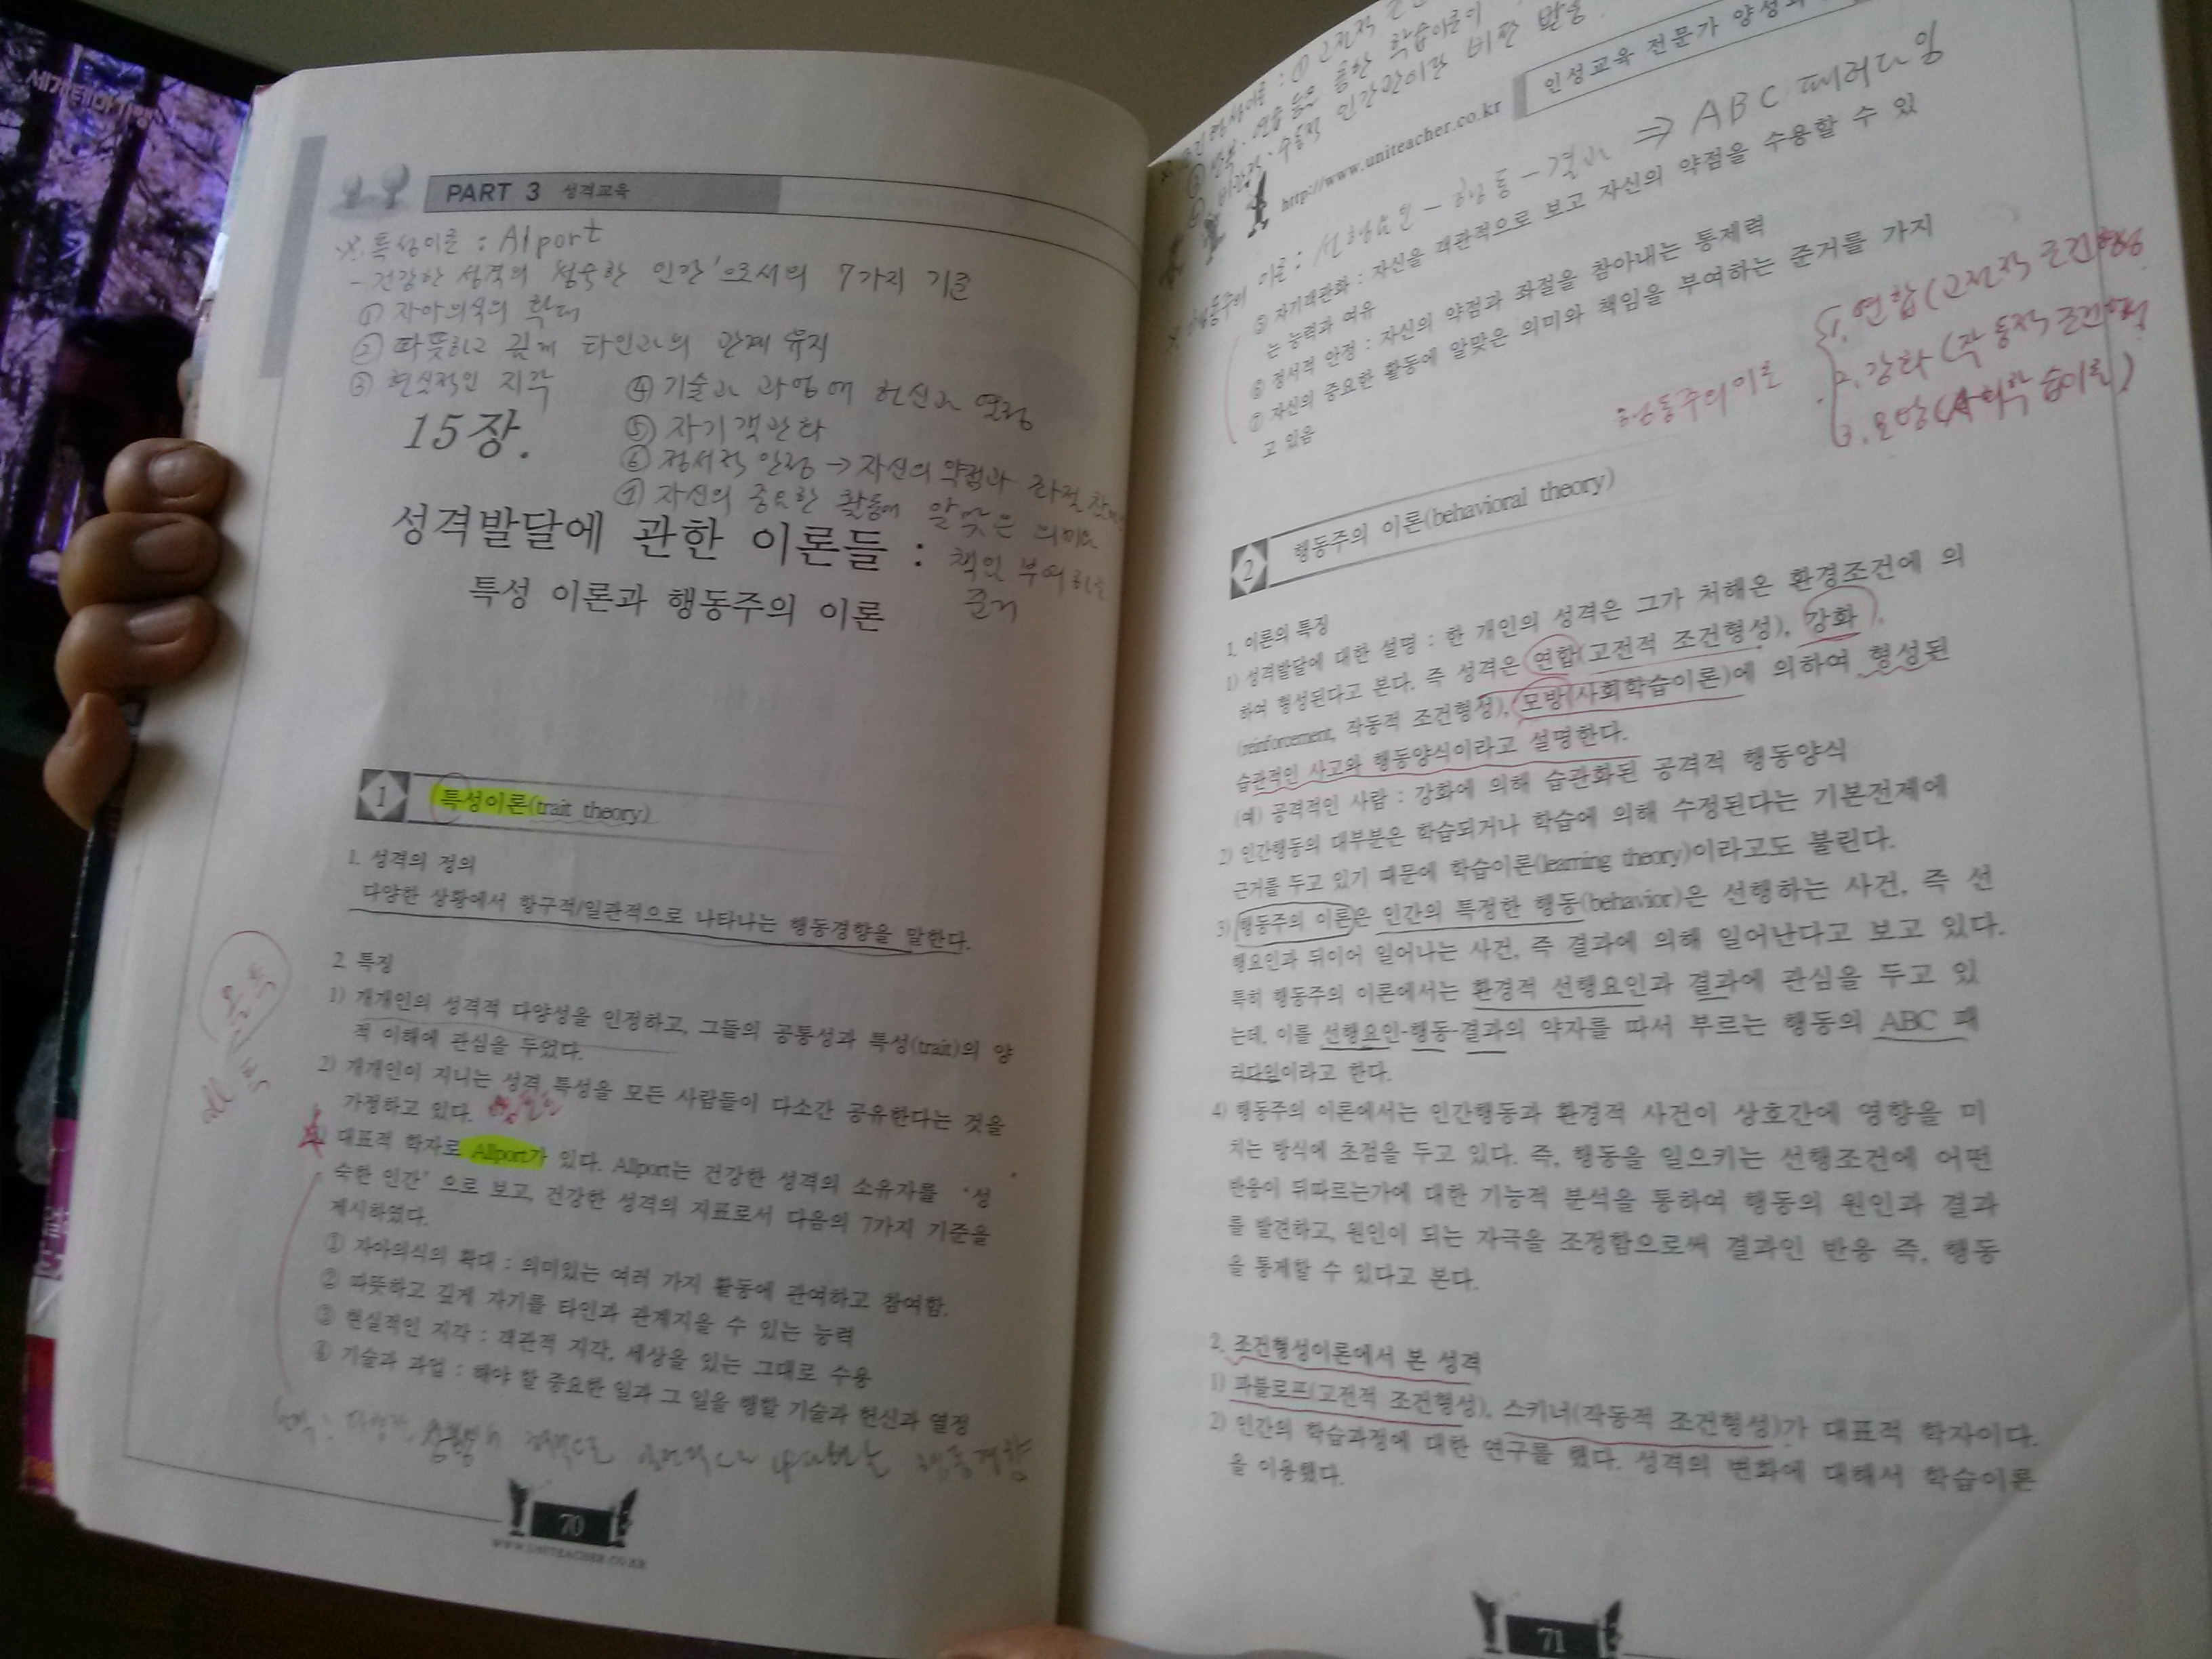 세계테마기행
PART 3 성격교육
※. 특성이론 : Alport
- 건강한 성격의 '성숙한 인간'으로서의 7가지 기준
① 자아의식의 확대
② 따뜻하고 깊게 타인과의 관계 유지
③ 현실적인 지각
④ 기술과 과업에 헌신과 열정
⑤ 자기객관화
⑥ 정서적 안정 → 자신의 약점과 좌절
⑦ 자신의 중요한 활동에 알맞은 의미와
책임 부여하는
준거
15장.
성격발달에 관한 이론들 :
특성 이론과 행동주의 이론
1 특성이론(trait theory)
1. 성격의 정의
다양한 상황에서 항구적/일관적으로 나타나는 행동경향을 말한다.
2. 특징
1) 개개인의 성격적 다양성을 인정하고, 그들의 공통성과 특성(trait)의 양
적 이해에 관심을 두었다.
2) 개개인이 지니는 성격 특성을 모든 사람들이 다소간 공유한다는 것을
가정하고 있다.
대표적 학자로 Allport가 있다. Allport는 건강한 성격의 소유자를 '성
숙한 인간' 으로 보고, 건강한 성격의 지표로서 다음의 7가지 기준을
제시하였다.
① 자아의식의 확대 : 의미있는 여러 가지 활동에 관여하고 참여함.
② 따뜻하고 깊게 자기를 타인과 관계지을 수 있는 능력
③ 현실적인 지각 : 객관적 지각, 세상을 있는 그대로 수용
④ 기술과 과업 : 해야 할 중요한 일과 그 일을 행할 기술과 헌신과 열정
70
WWW.UNITEACHER.CO.KR
인간관이란 비판 받음.
http://www.uniteacher.co.kr
인성교육 전문가 양성과
이론 : 선행요인 - 행동 - 결과 ⇒ ABC 패러다임
⑤ 자기객관화 : 자신을 객관적으로 보고 자신의 약점을 수용할 수 있
는 능력과 여유
⑥ 정서적 안정 : 자신의 약점과 좌절을 참아내는 통제력
⑦ 자신의 중요한 활동에 알맞은 의미와 책임을 부여하는 준거를 가지
고 있음
행동주의이론
1. 연합(고전적 조건형성
2. 강화(작동적 조건형성
3. 모방(사회학습이론)
2 행동주의 이론(behavioral theory)
1. 이론의 특징
1) 성격발달에 대한 설명 : 한 개인의 성격은 그가 처해온 환경조건에 의
하여 형성된다고 본다. 즉 성격은 연합(고전적 조건형성), 강화
(reinforcement, 작동적 조건형성), 모방(사회학습이론)에 의하여 형성된
습관적인 사고와 행동양식이라고 설명한다.
(예) 공격적인 사람 : 강화에 의해 습관화된 공격적 행동양식
2) 인간행동의 대부분은 학습되거나 학습에 의해 수정된다는 기본전제에
근거를 두고 있기 때문에 학습이론(learning theory)이라고도 불린다.
3) 행동주의 이론은 인간의 특정한 행동(behavior)은 선행하는 사건, 즉 선
행요인과 뒤이어 일어나는 사건, 즉 결과에 의해 일어난다고 보고 있다.
특히 행동주의 이론에서는 환경적 선행요인과 결과에 관심을 두고 있
는데, 이를 선행요인-행동-결과의 약자를 따서 부르는 행동의 ABC 패
러다임이라고 한다.
4) 행동주의 이론에서는 인간행동과 환경적 사건이 상호간에 영향을 미
치는 방식에 초점을 두고 있다. 즉, 행동을 일으키는 선행조건에 어떤
반응이 뒤따르는가에 대한 기능적 분석을 통하여 행동의 원인과 결과
를 발견하고, 원인이 되는 자극을 조정함으로써 결과인 반응 즉, 행동
을 통제할 수 있다고 본다.
2. 조건형성이론에서 본 성격
1) 파블로프(고전적 조건형성), 스키너(작동적 조건형성)가 대표적 학자이다.
2) 인간의 학습과정에 대한 연구를 했다. 성격의 변화에 대해서 학습이론
을 이용했다.
71